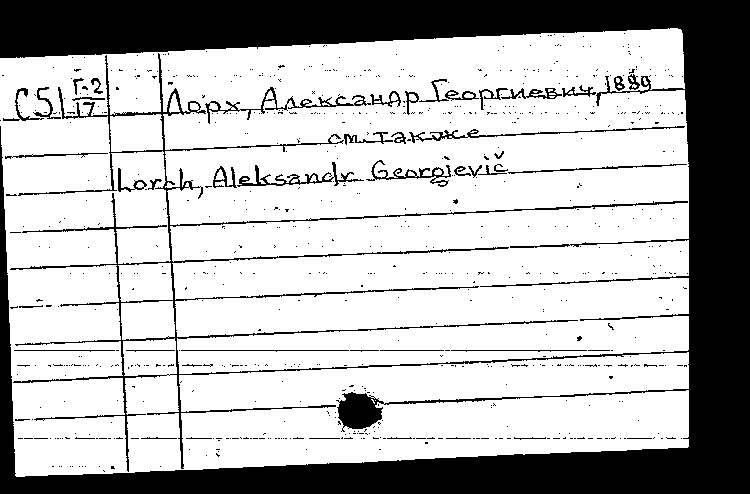 С51 Г-2/17 Лорх, Александр Георгиевич, 1889
см. также
Lorch, Aleksandr Georgievič